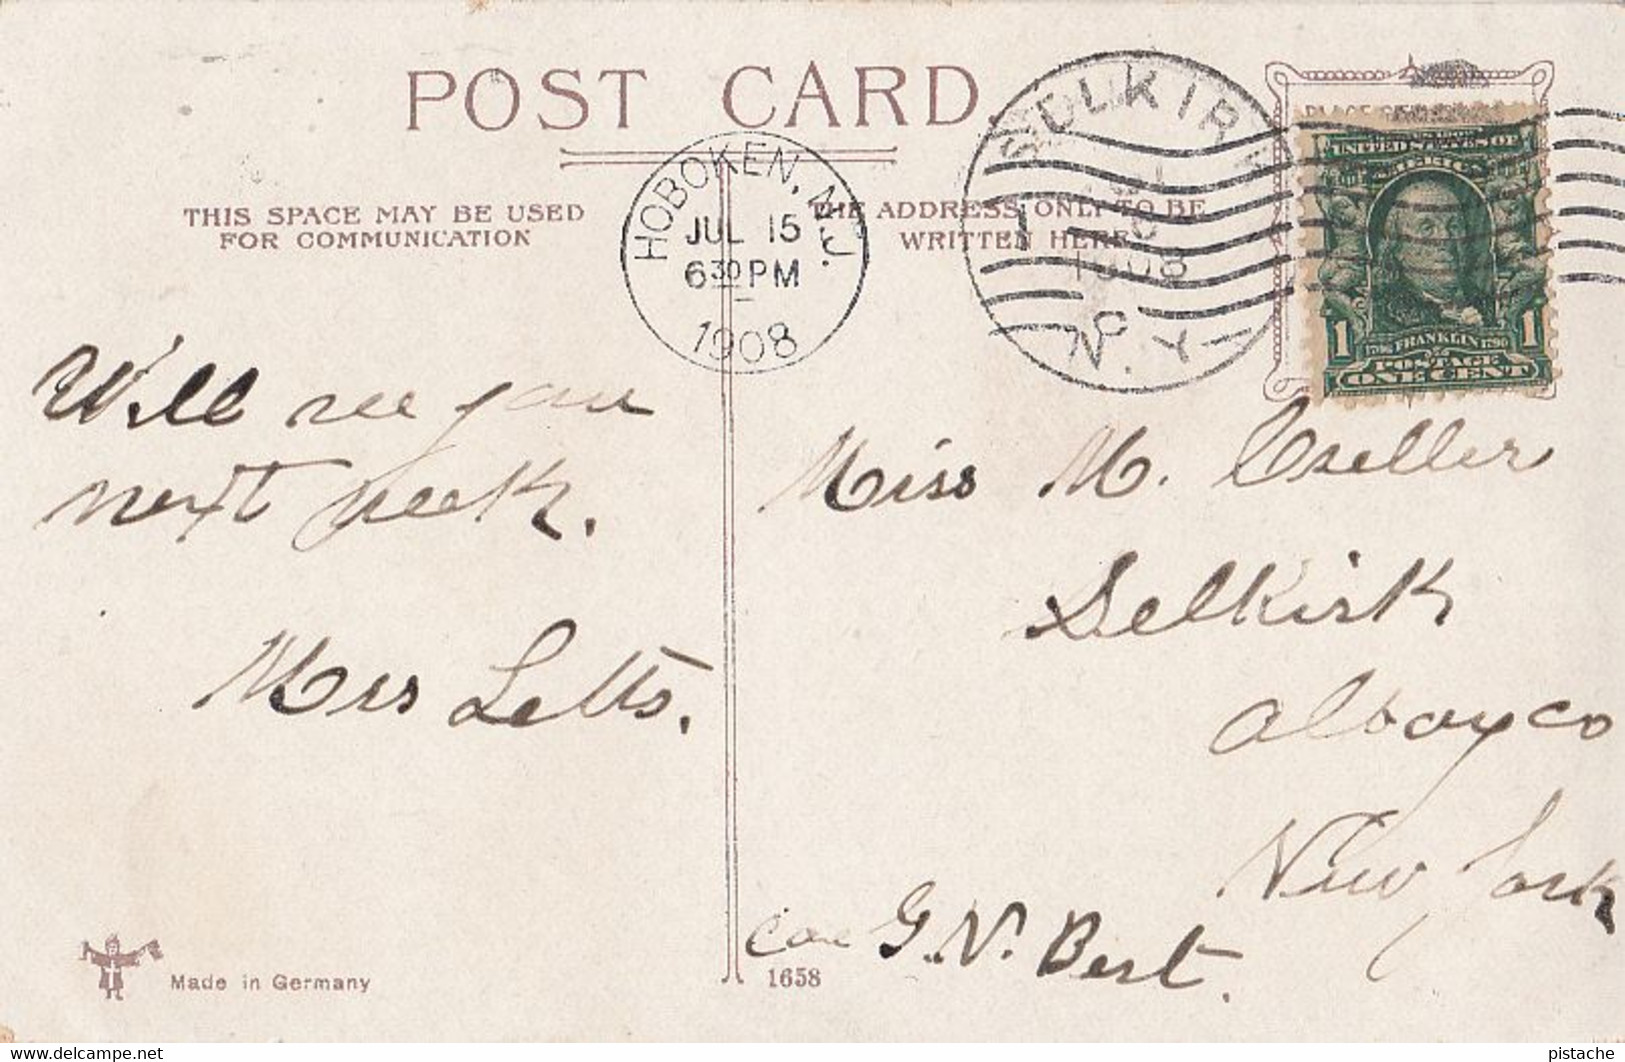 POST CARD
THIS SPACE MAY BE USED
FOR COMMUNICATION
THE ADDRESS ONLY TO BE
WRITTEN HERE
HOBOKEN, N.J.
JUL 15
6 30 PM
1908
SELKIRK
1908
N.Y.
UNITED STATES OF
AMERICA
1 1
1706 FRANKLIN 1790
POSTAGE
ONE CENT
Will see you
next week.
Mrs Letts.
Miss M.
Selkirk
Albay co
New York
G. N. Bert.
Made in Germany
1658
delcampe.net
pistache